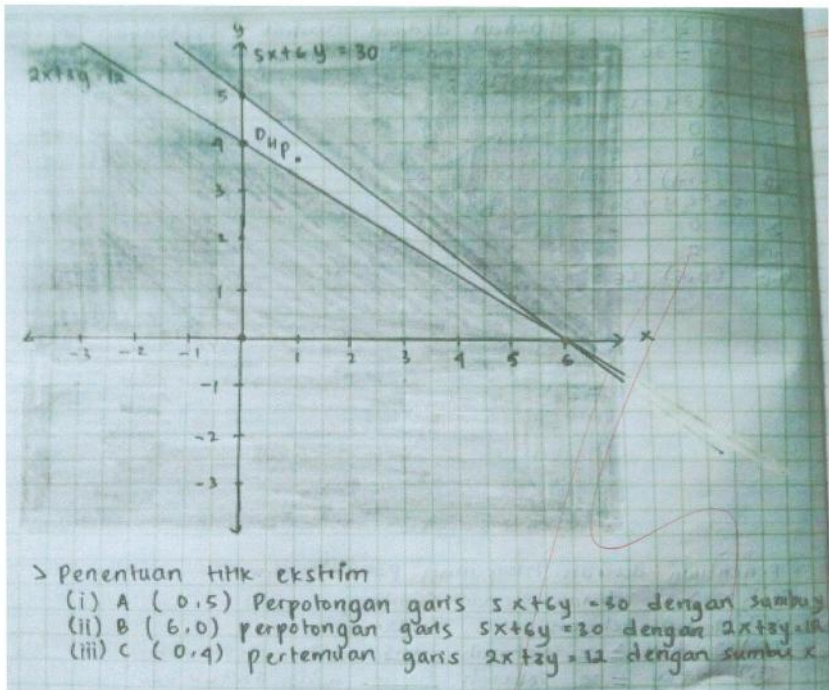 y
5x+6y = 30
2x+3y = 12
5
DHP.
4
3
2
1
x
-3 -2 -1 1 2 3 4 5 6
-1
-2
-3
> Penentuan titik ekstrim
(i) A (0,5) Perpotongan garis 5x+6y = 30 dengan sumbu y
(ii) B (6,0) perpotongan garis 5x+6y = 30 dengan 2x+3y = 12
(iii) C (0,4) pertemuan garis 2x+3y = 12 dengan sumbu x